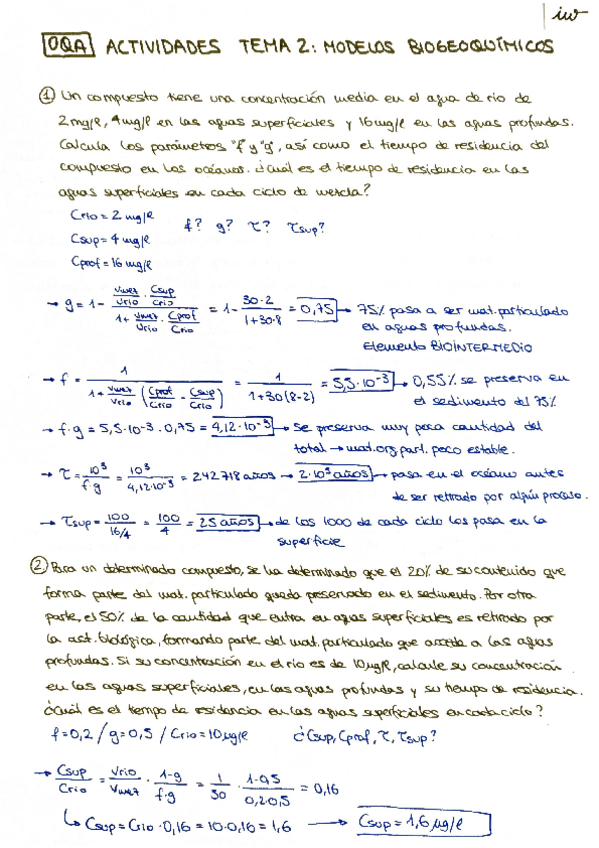 iw
OQA ACTIVIDADES TEMA 2: MODELOS BIOGEOQUÍMICOS
① Un compuesto tiene una concentración media en el agua de río de
2mg/l, 4mg/l en las aguas superficiales y 16mg/l en las aguas profundas.
Calcula los parámetros "f" y "g", así como el tiempo de residencia del
compuesto en los océanos. ¿Cuál es el tiempo de residencia en las
aguas superficiales en cada ciclo de mezcla?
Crio = 2 mg/l f? g? τ? τsup?
Csup = 4 mg/l
Cprof = 16 mg/l
→ g = 1 - (Vmez/Vrio · Csup/Crio) / (1 + Vmez/Vrio · Cprof/Crio) = 1 - 30·2/(1+30·8) = 0,75 → 75% pasa a ser mat. particulado
en aguas profundas.
Elemento BIOINTERMEDIO
→ f = 1 / (1 + Vmez/Vrio (Cprof/Crio - Csup/Crio)) = 1/(1+30(8-2)) = 5,5·10⁻³ → 0,55% se preserva en
el sedimento del 75%
→ f·g = 5,5·10⁻³ · 0,75 = 4,12·10⁻³ → Se preserva muy poca cantidad del
total → mat. org. part. poco estable.
→ τ = 10³/f·g = 10³/4,12·10⁻³ = 242718 años → 2·10⁵ años → pasa en el océano antes
de ser retirado por algún proceso.
→ τsup = 100/(16/4) = 100/4 = 25 años → de los 1000 de cada ciclo los pasa en la
superficie
② Para un determinado compuesto, se ha determinado que el 20% de su contenido que
forma parte del mat. particulado queda preservado en el sedimento. Por otra
parte, el 50% de la cantidad que entra en aguas superficiales es retirado por
la act. biológica, formando parte del mat. particulado que accede a las aguas
profundas. Si su concentración en el río es de 10µg/l, calcule su concentración
en las aguas superficiales, en las aguas profundas y su tiempo de residencia.
¿Cuál es el tiempo de residencia en las aguas superficiales en cada ciclo?
f = 0,2 / g = 0,5 / Crio = 10 µg/l ¿Csup, Cprof, τ, τsup?
→ Csup/Crio = Vrio/Vmez · 1-g/f·g = 1/30 · 1-0,5/0,2·0,5 = 0,16
↳ Csup = Crio · 0,16 = 10·0,16 = 1,6 → Csup = 1,6 µg/l